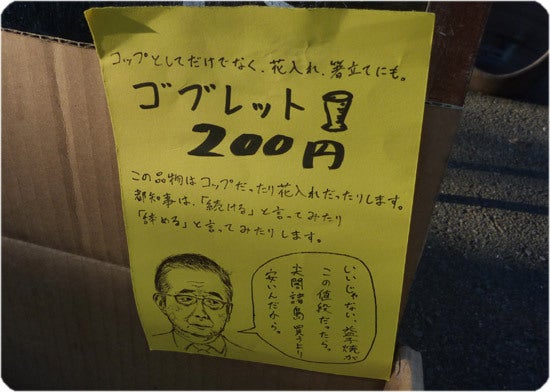 コップとしてだけでなく、花入れ、箸立てにも。
ゴブレット
200円
この品物はコップだったり花入れだったりします。
都知事は、「続ける」と言ってみたり
「辞める」と言ってみたりします。
いいじゃない、益子焼が
この値段だったら。
尖閣諸島買うより
安いんだから。